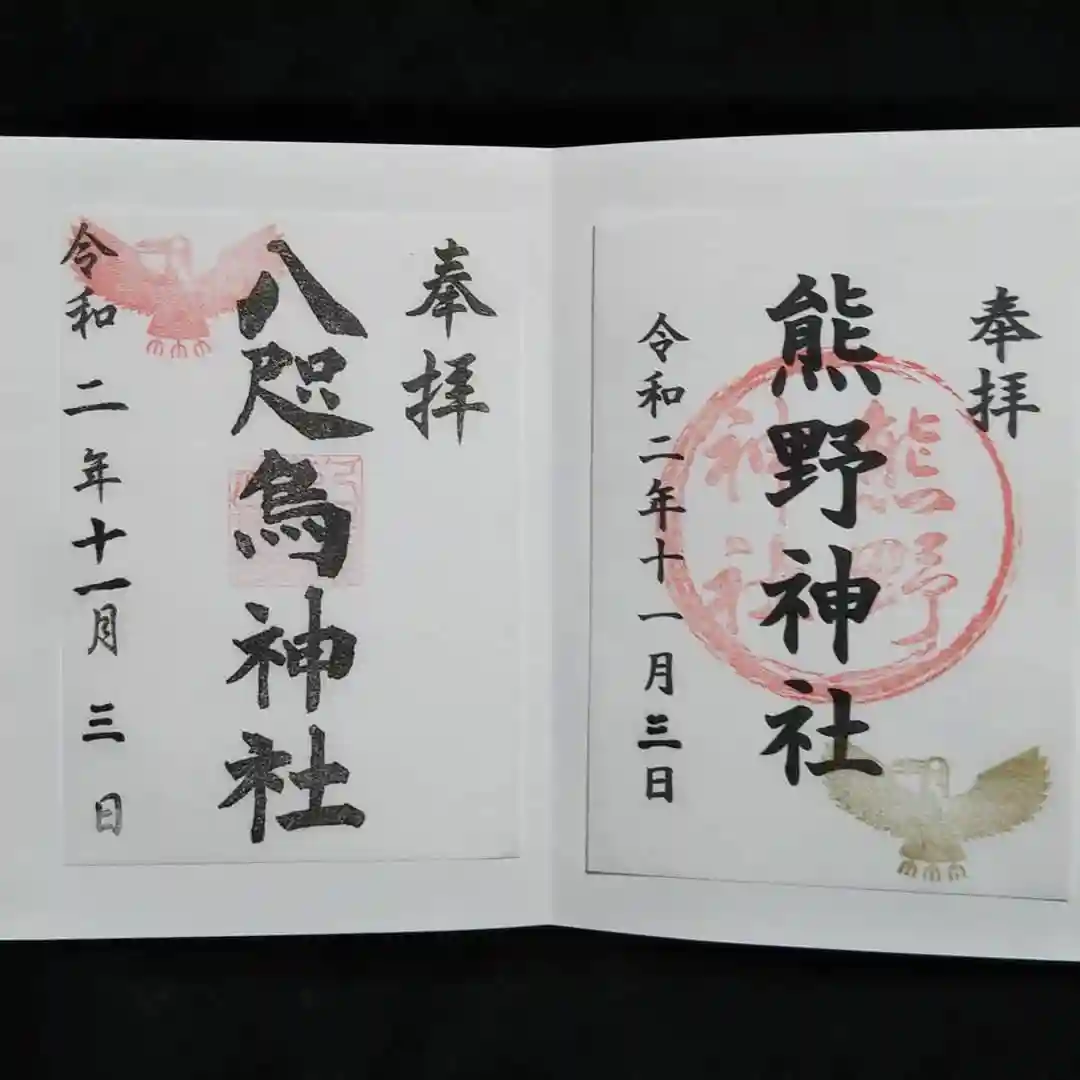 奉拝
熊野神社
熊野
神社
令和二年十一月三日
奉拝
八咫烏神社
令和二年十一月三日